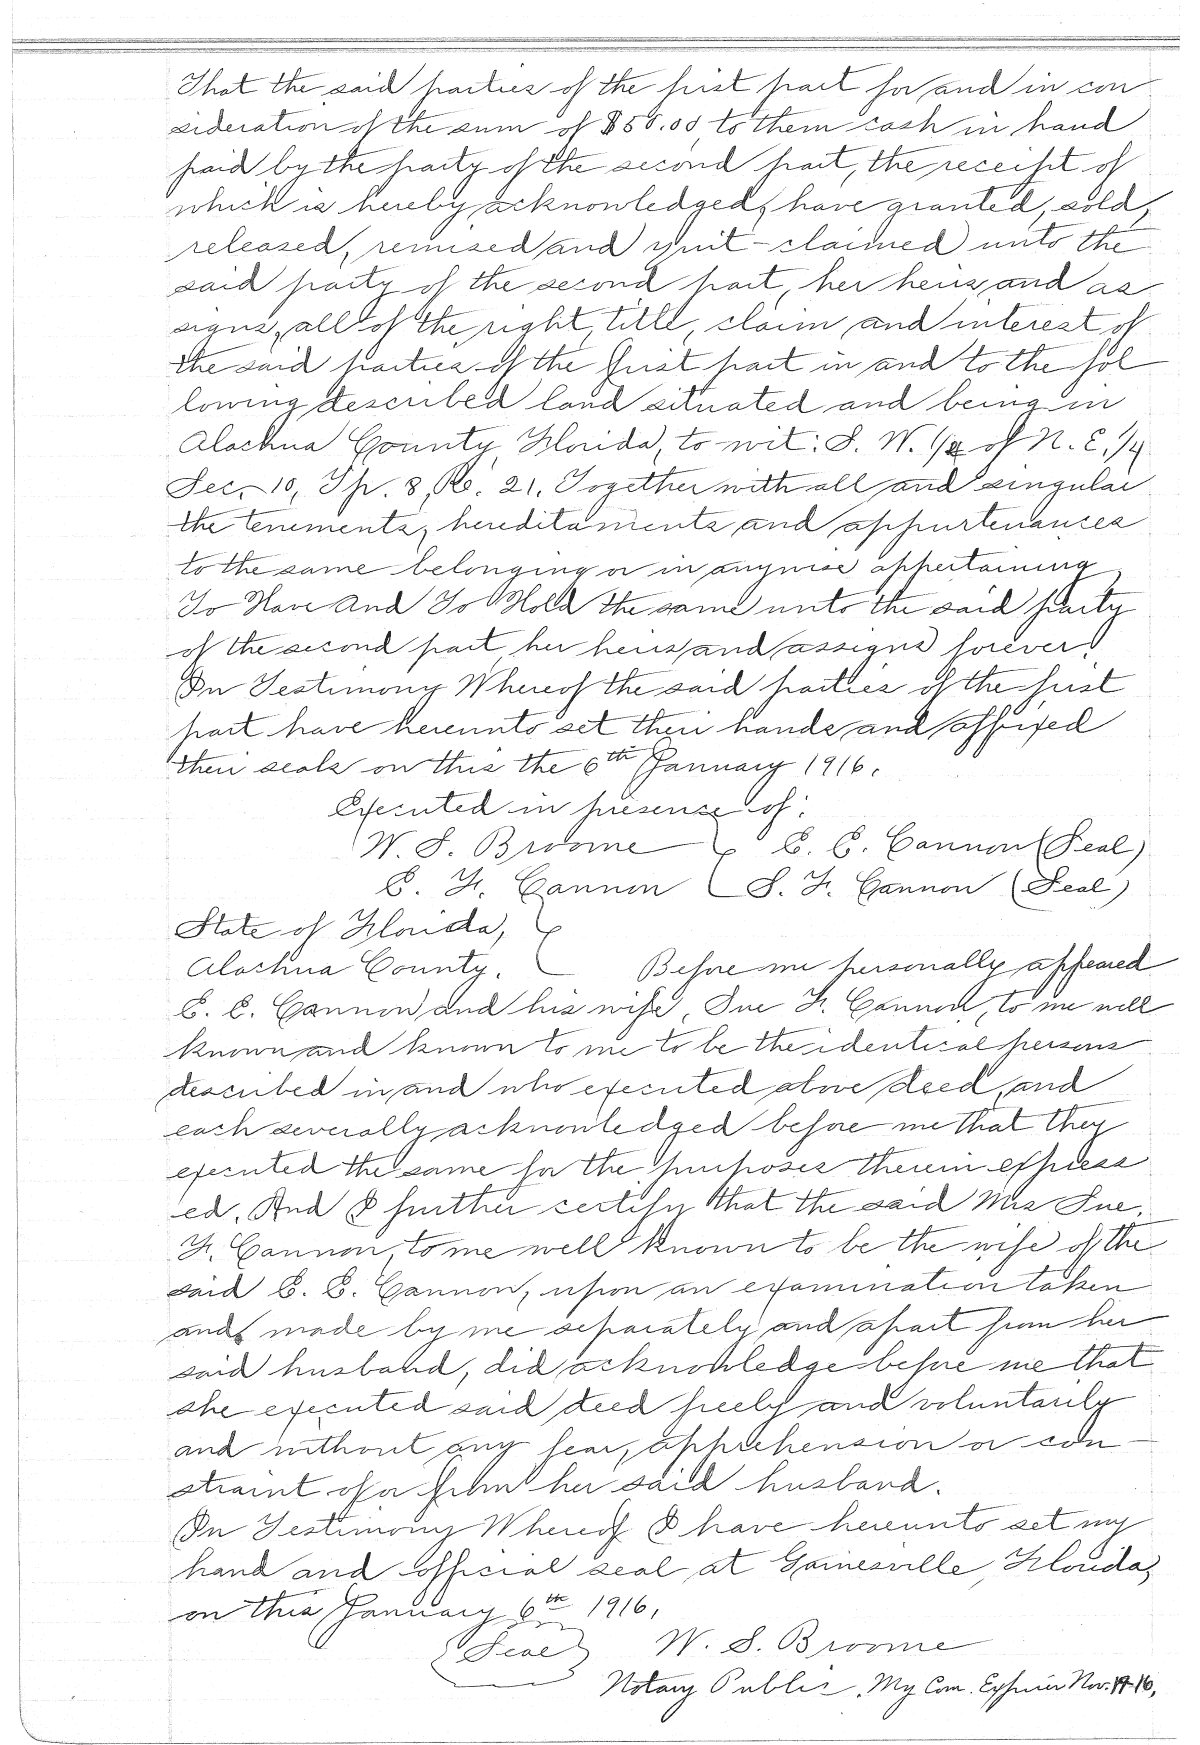 That the said parties of the first part for and in con
sideration of the sum of $50.00 to them cash in hand
paid by the party of the second part, the receipt of
which is hereby acknowledged, have granted, sold,
released, remised and quit-claimed unto the
said party of the second part, her heirs and as
signs, all of the right, title, claim and interest of
the said parties of the first part in and to the fol
lowing described land situated and being in
Alachua County, Florida, to wit: S. W. 1/4 of N. E. 1/4
Sec. 10, Tp. 8, R. 21. Together with all and singular
the tenements, hereditaments and appurtenances
to the same belonging or in anywise appertaining,
To Have And To Hold the same unto the said party
of the second part, her heirs and assigns forever.
In Testimony Whereof the said parties of the first
part have hereunto set their hands and affixed
their seals on this the 6th January 1916.
Executed in presence of:
W. S. Broome } E. E. Cannon (Seal)
E. F. Cannon { S. F. Cannon (Seal)
State of Florida, }
Alachua County. { Before me personally appeared
E. E. Cannon and his wife, Sue F. Cannon, to me well
known and known to me to be the identical persons
described in and who executed above deed, and
each severally acknowledged before me that they
executed the same for the purposes therein express
ed. And I further certify that the said Mrs Sue.
F. Cannon, to me well known to be the wife of the
said E. E. Cannon, upon an examination taken
and made by me separately and apart from her
said husband, did acknowledge before me that
she executed said deed freely and voluntarily
and without any fear, apprehension or con-
straint of or from her said husband.
In Testimony Whereof I have hereunto set my
hand and official seal at Gainesville, Florida,
on this January 6th 1916,
(Seal) W. S. Broome
Notary Public. My Com. Expires Nov.